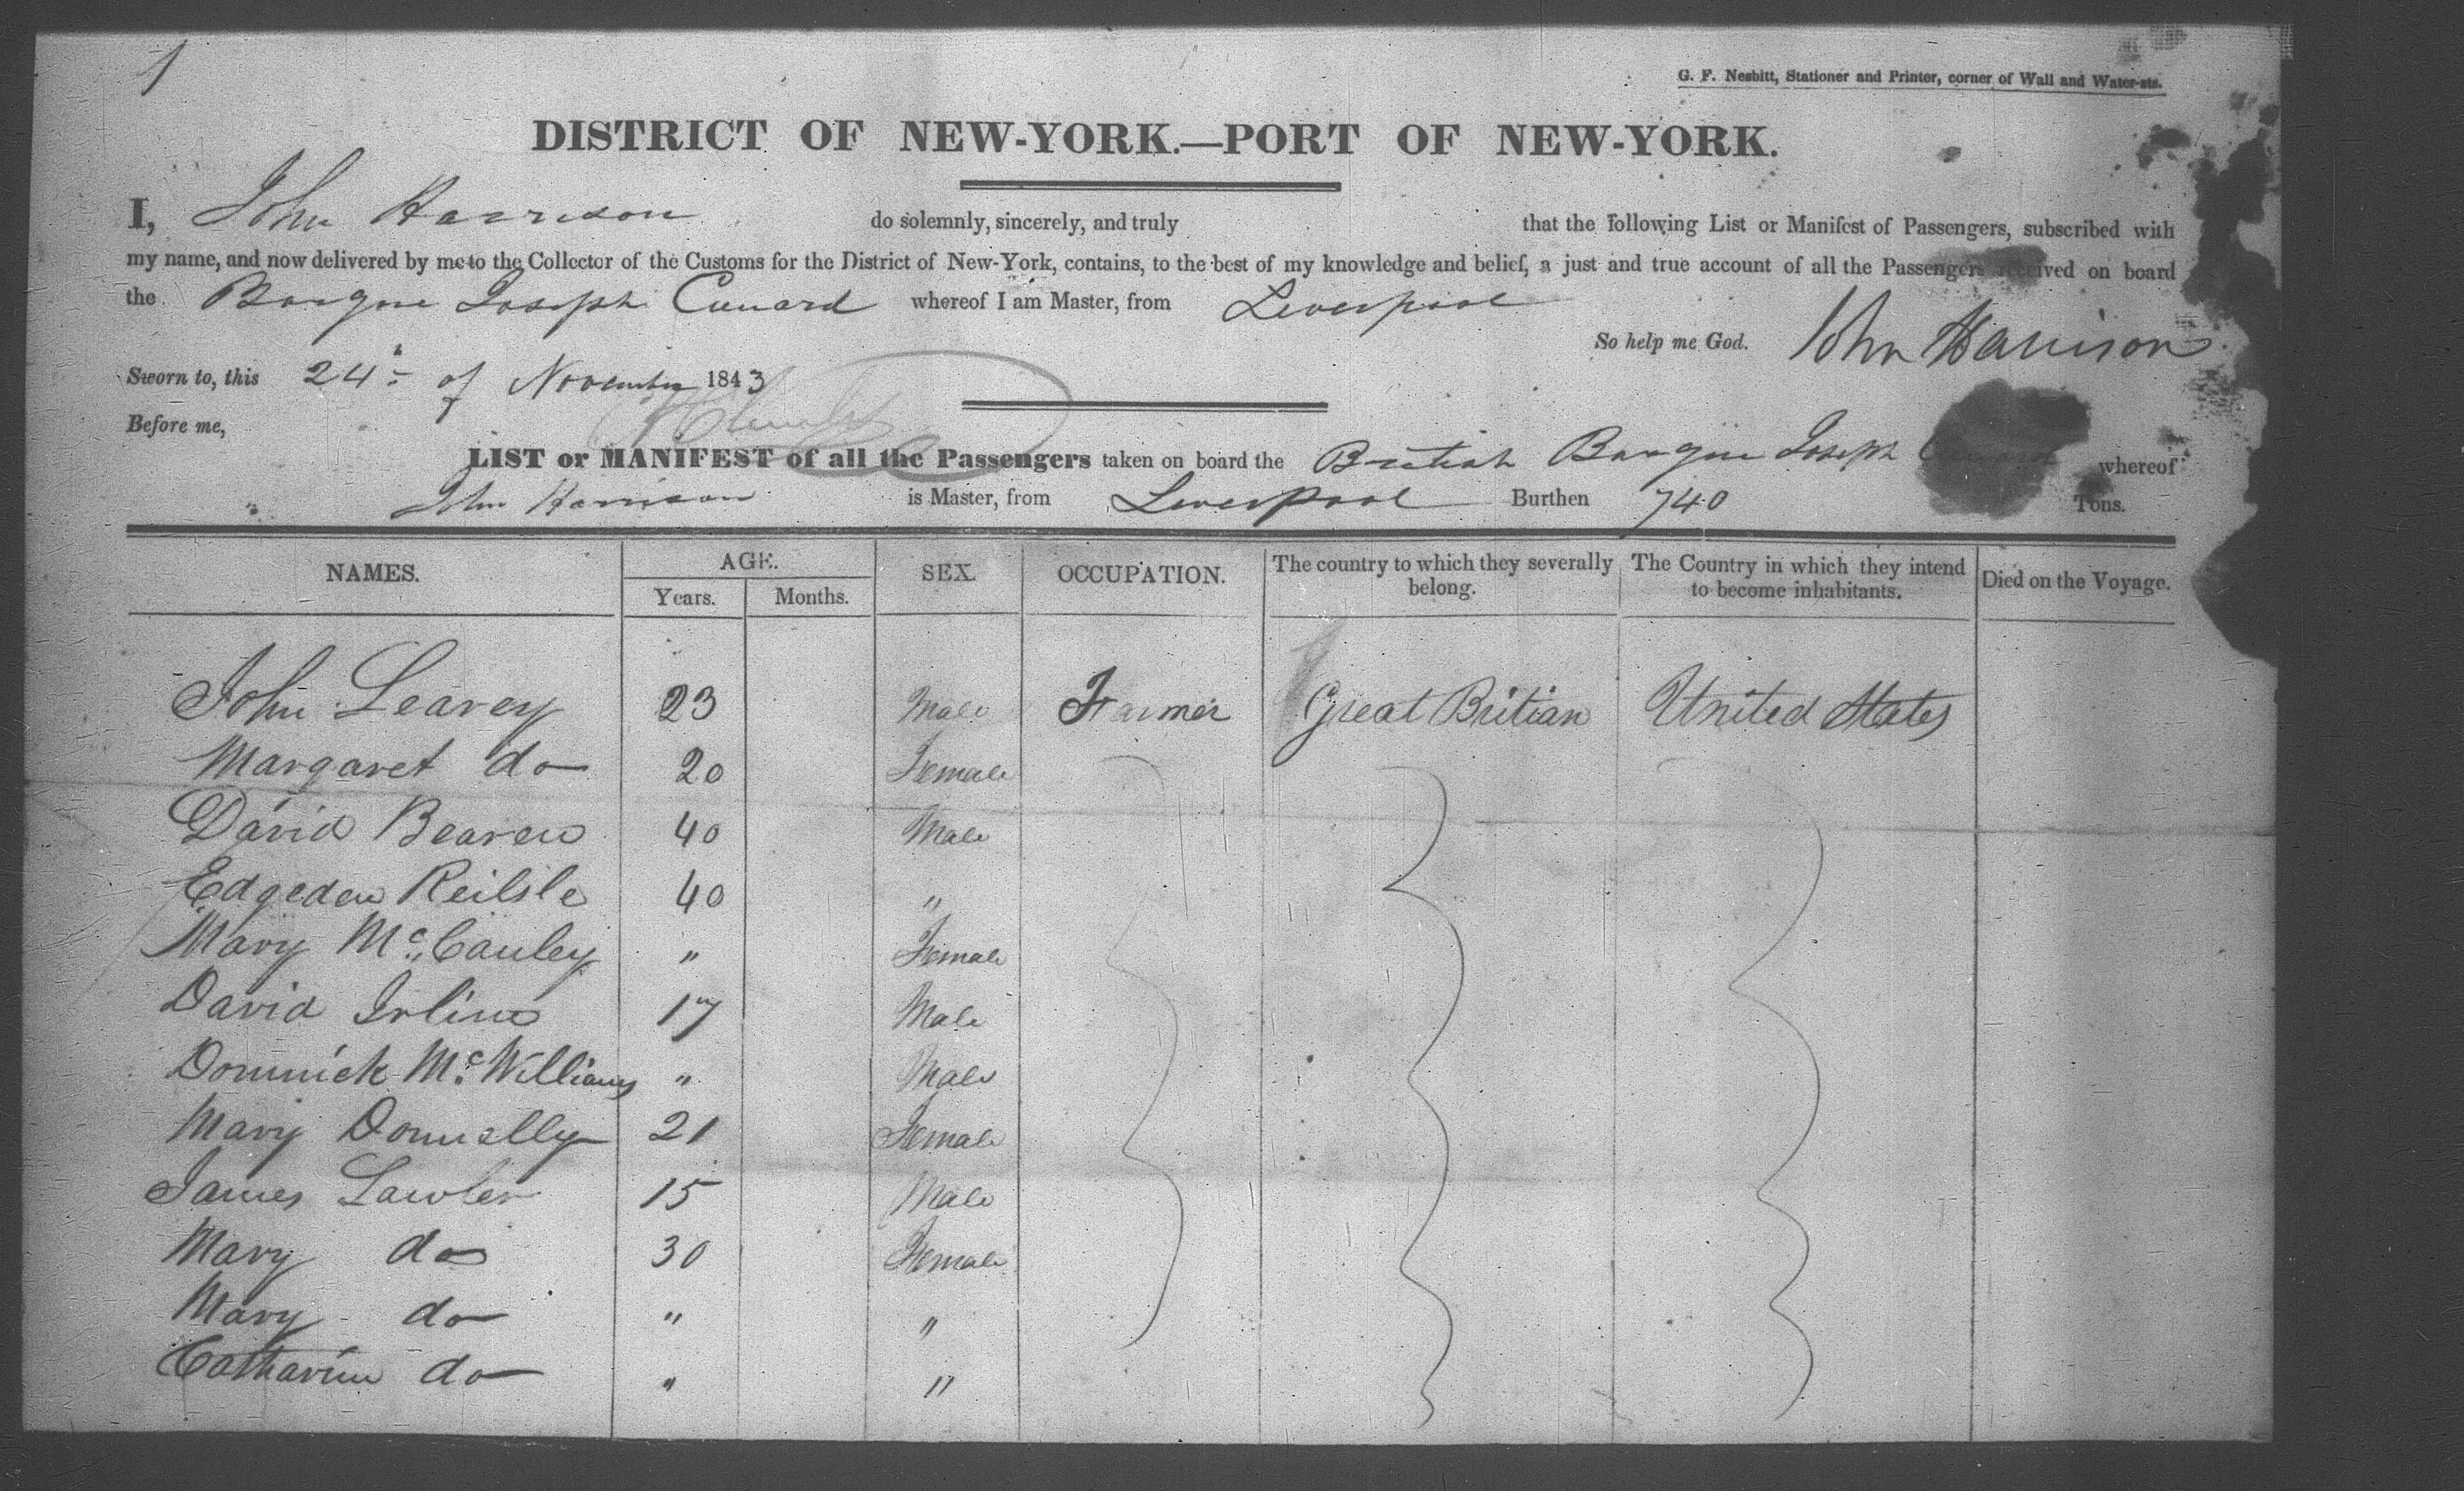 1
G. F. Nesbitt, Stationer and Printer, corner of Wall and Water-sts.
DISTRICT OF NEW-YORK.—PORT OF NEW-YORK.
I, John Harrison do solemnly, sincerely, and truly that the following List or Manifest of Passengers, subscribed with
my name, and now delivered by me to the Collector of the Customs for the District of New-York, contains, to the best of my knowledge and belief, a just and true account of all the Passengers received on board
the Barque Joseph Cunard whereof I am Master, from Liverpool
So help me God. John Harrison
Sworn to, this 24th of November 1843
Before me,
LIST or MANIFEST of all the Passengers taken on board the British Barque Joseph Cunard whereof
" John Harrison is Master, from Liverpool Burthen 740 Tons.
NAMES. AGE. Years. Months. SEX. OCCUPATION. The country to which they severally belong. The Country in which they intend to become inhabitants. Died on the Voyage.
John Leavey 23 Male Farmer Great Britian United States
Margaret do 20 Female
David Bearen 40 Male
Edgeden Reilsle 40 "
Mary McCauley " Female
David Irlins 17 Male
Dominick McWilliams " Male
Mary Donnelly 21 Female
James Lawler 15 Male
Mary do 30 Female
Mary do " "
Catharine do " "